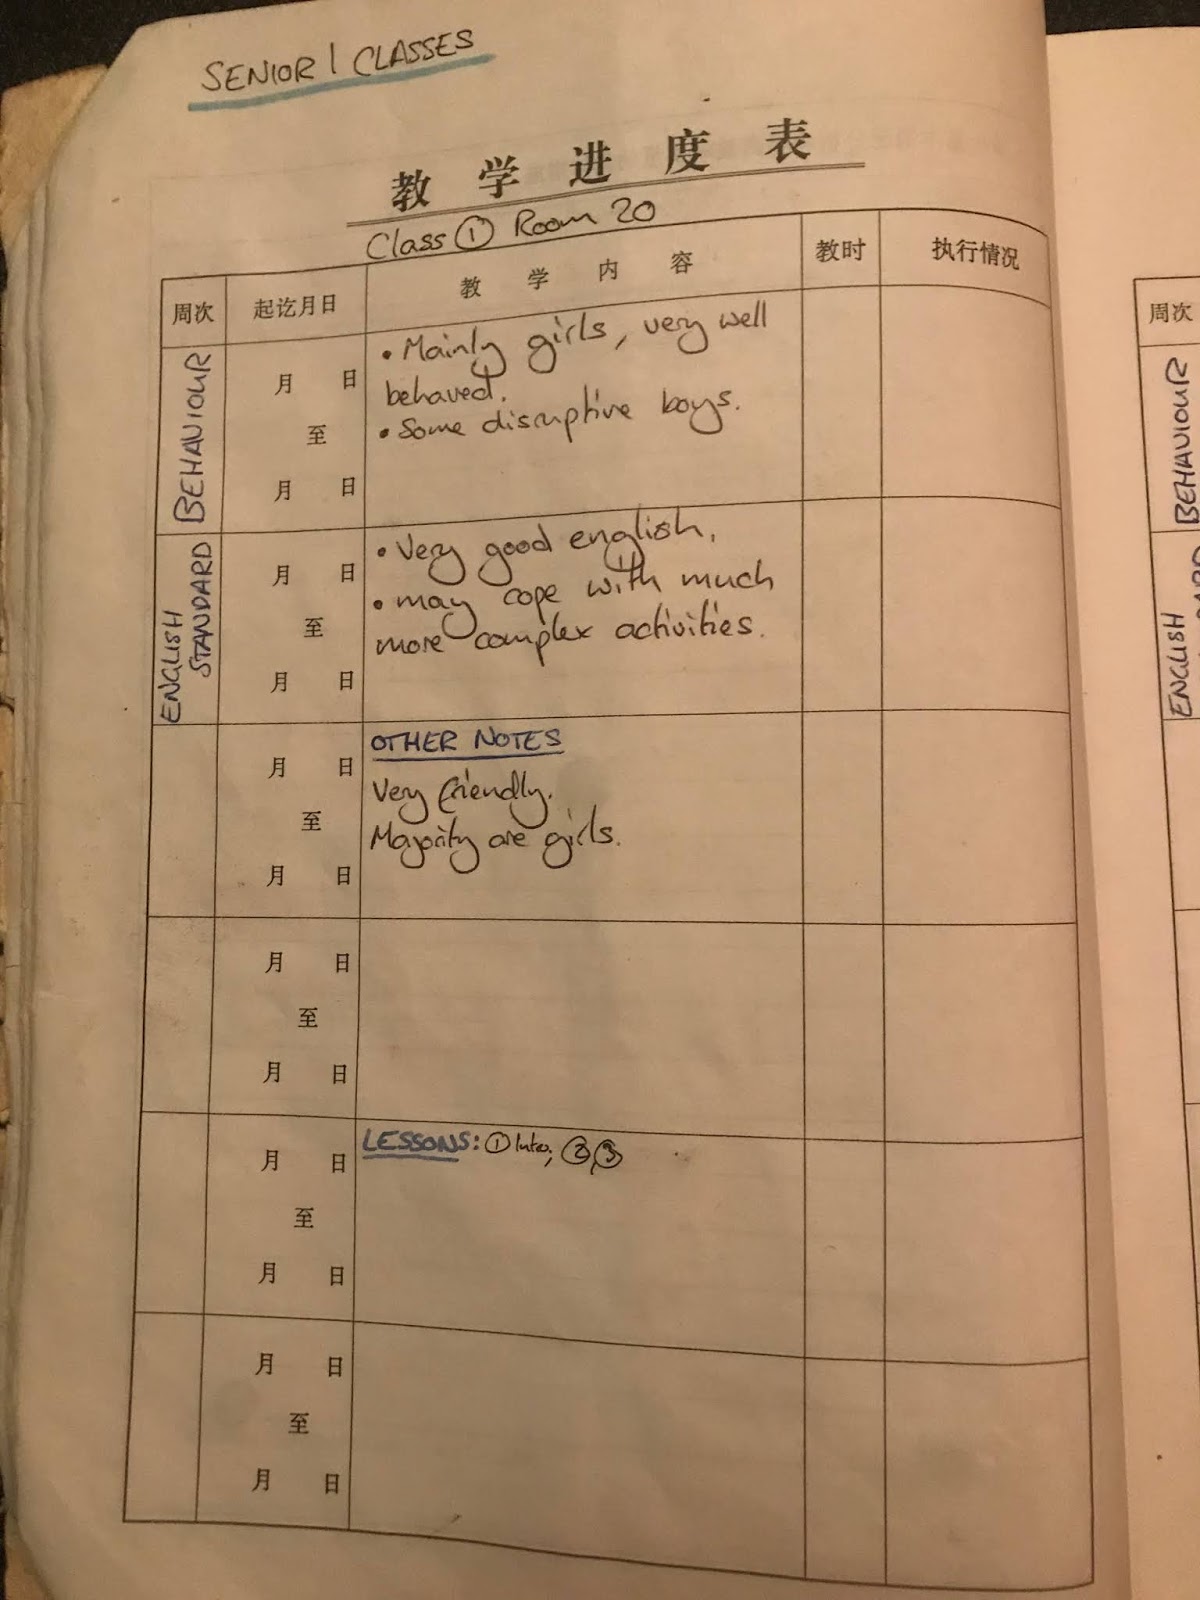 SENIOR 1 CLASSES
教学进度表
Class ① Room 20
周次 起讫月日 教学内容 教时 执行情况
BEHAVIOUR
月 日
至
月 日
• Mainly girls, very well
behaved.
• Some disruptive boys.
ENGLISH
STANDARD
月 日
至
月 日
• Very good english,
• may cope with much
more complex activities.
月 日
至
月 日
OTHER NOTES
Very friendly.
Majority are girls.
月 日
至
月 日
月 日
至
月 日
LESSONS: ① Intro; ②, ③
月 日
至
月 日
周次
BEHAVIOUR
ENGLISH